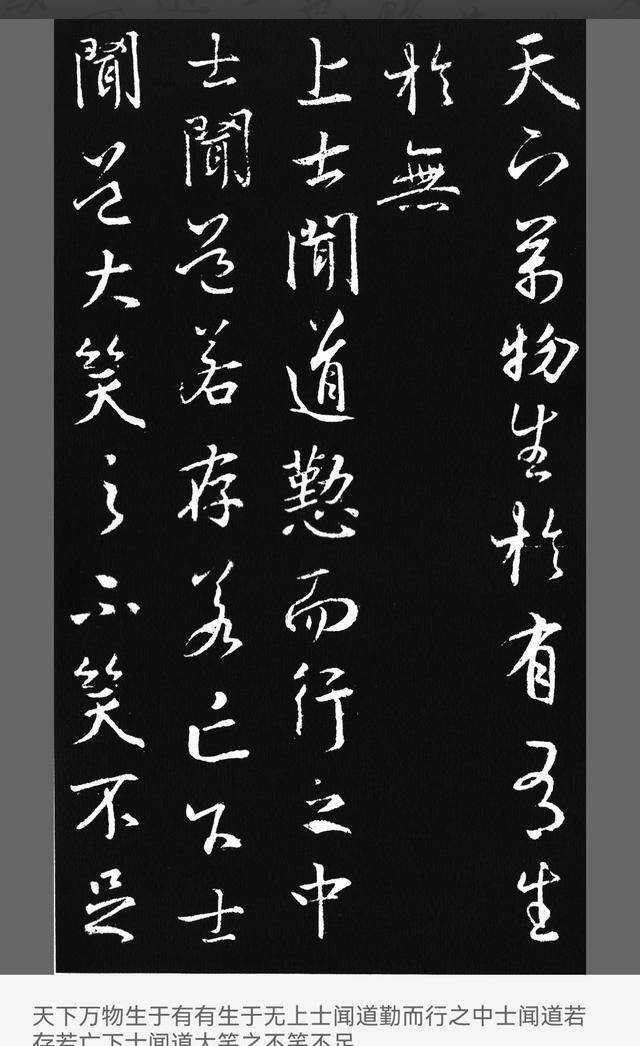 天下萬物生於有有生
於無
上士聞道懃而行之中
士聞道若存若亡下士
聞道大笑之不笑不足
天下万物生于有有生于无上士闻道勤而行之中士闻道若
存若亡下士闻道大笑之不笑不足